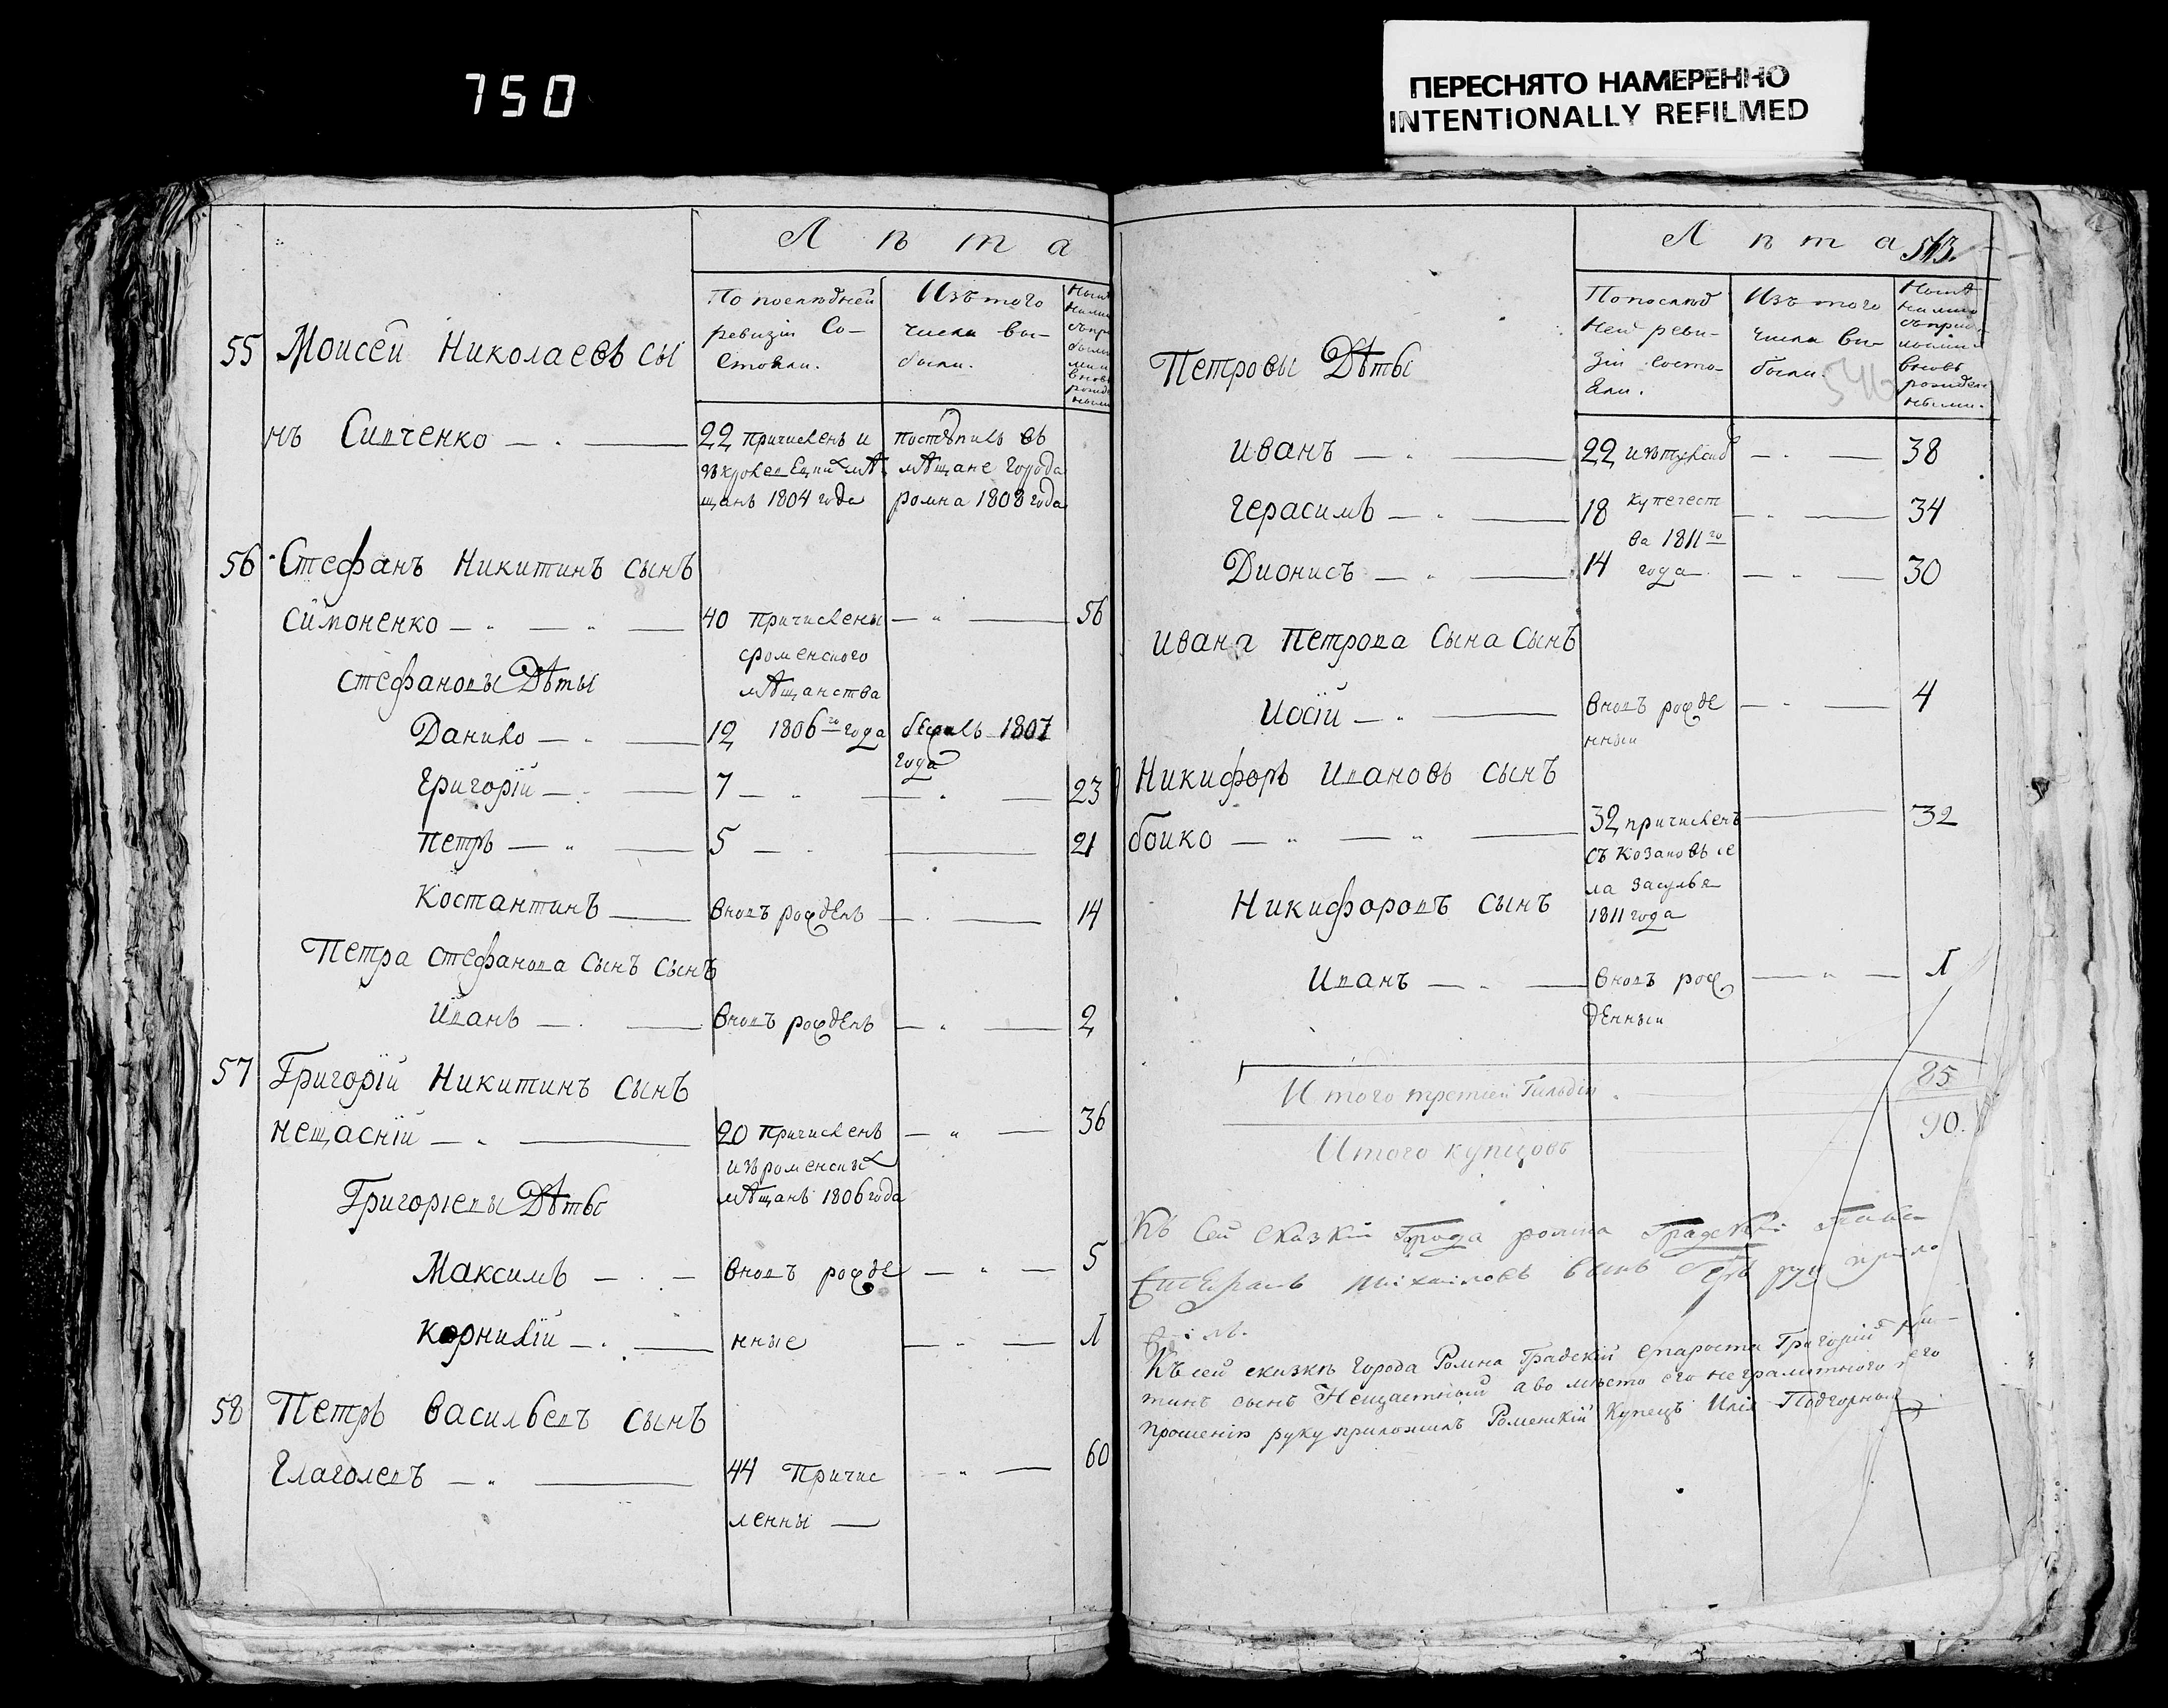 750
ПЕРЕСНЯТО НАМЕРЕННО
INTENTIONALLY REFILMED
Лѣта
По послѣдней
ревизіи Со-
стояли.
Изъ того
числа вы-
были.
55 Моисей Николаевъ сы
нъ Сипченко
22 причисленъ и
щанъ 1804 года
поступилъ въ
мѣщане города
ромна 1808 года
56 Стефанъ Никитинъ сынъ
Симоненко
40 причислены
сроменского
мѣщанства
56
Стефановы Дѣты
Данило 12 1806го года
1807
года
Григорій 7 23
Петръ 5 21
Костантинъ вновъ рожденъ 14
Петра Стефанова сынъ сынъ
Иванъ вновъ рожденъ 2
57 Григорій Никитинъ сынъ
нещасній 20 причисленъ 36
изъ роменскихъ
мѣщанъ 1806 года
Григоріевы Дѣты
Максимъ вновъ рожде 5
Корнилій нные 1
58 Петръ васильевъ сынъ
Глаголевъ 44 Причис 60
ленны
Лѣта 543.
По послѣд
ней реви-
зіи состо-
яли.
Изъ того
числа вы-
были.
вновь
рожден
ными.
Петровы Дѣты
иванъ 22 38
герасимъ 18 купечест 34
ва 1811го
Дионисъ 14 года 30
ивана Петрова Сына Сынъ
иосій вновъ рожде 4
нный
Никифоръ Ивановъ сынъ
бойко 32 причисленъ 32
съ козаковъ се
ла засулья
1811 года
Никифоровъ сынъ
Иванъ вновъ рож 1
денный
Итого третіей Гильдіи 85
Итого купцовъ 90.
Къ сей сказкѣ города Ромна Градскій староста Григорій Ники-
тинъ сынъ Нещастный а во мѣсто его неграмотного его
прошенію руку приложилъ Роменскій Купецъ Илія Подгорный